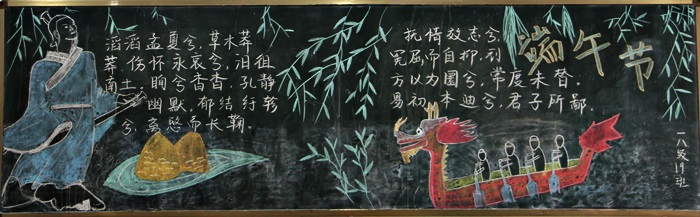 滔滔孟夏兮，草木莽
莽。伤怀永哀兮，汩徂
南土。眴兮杳杳，孔静
幽默。郁结纡轸
兮，离愍而长鞠。
抚情效志兮，
冤屈而自抑。刓
方以为圜兮，常度未替。
易初本迪兮，君子所鄙。
端午节
一八级19班